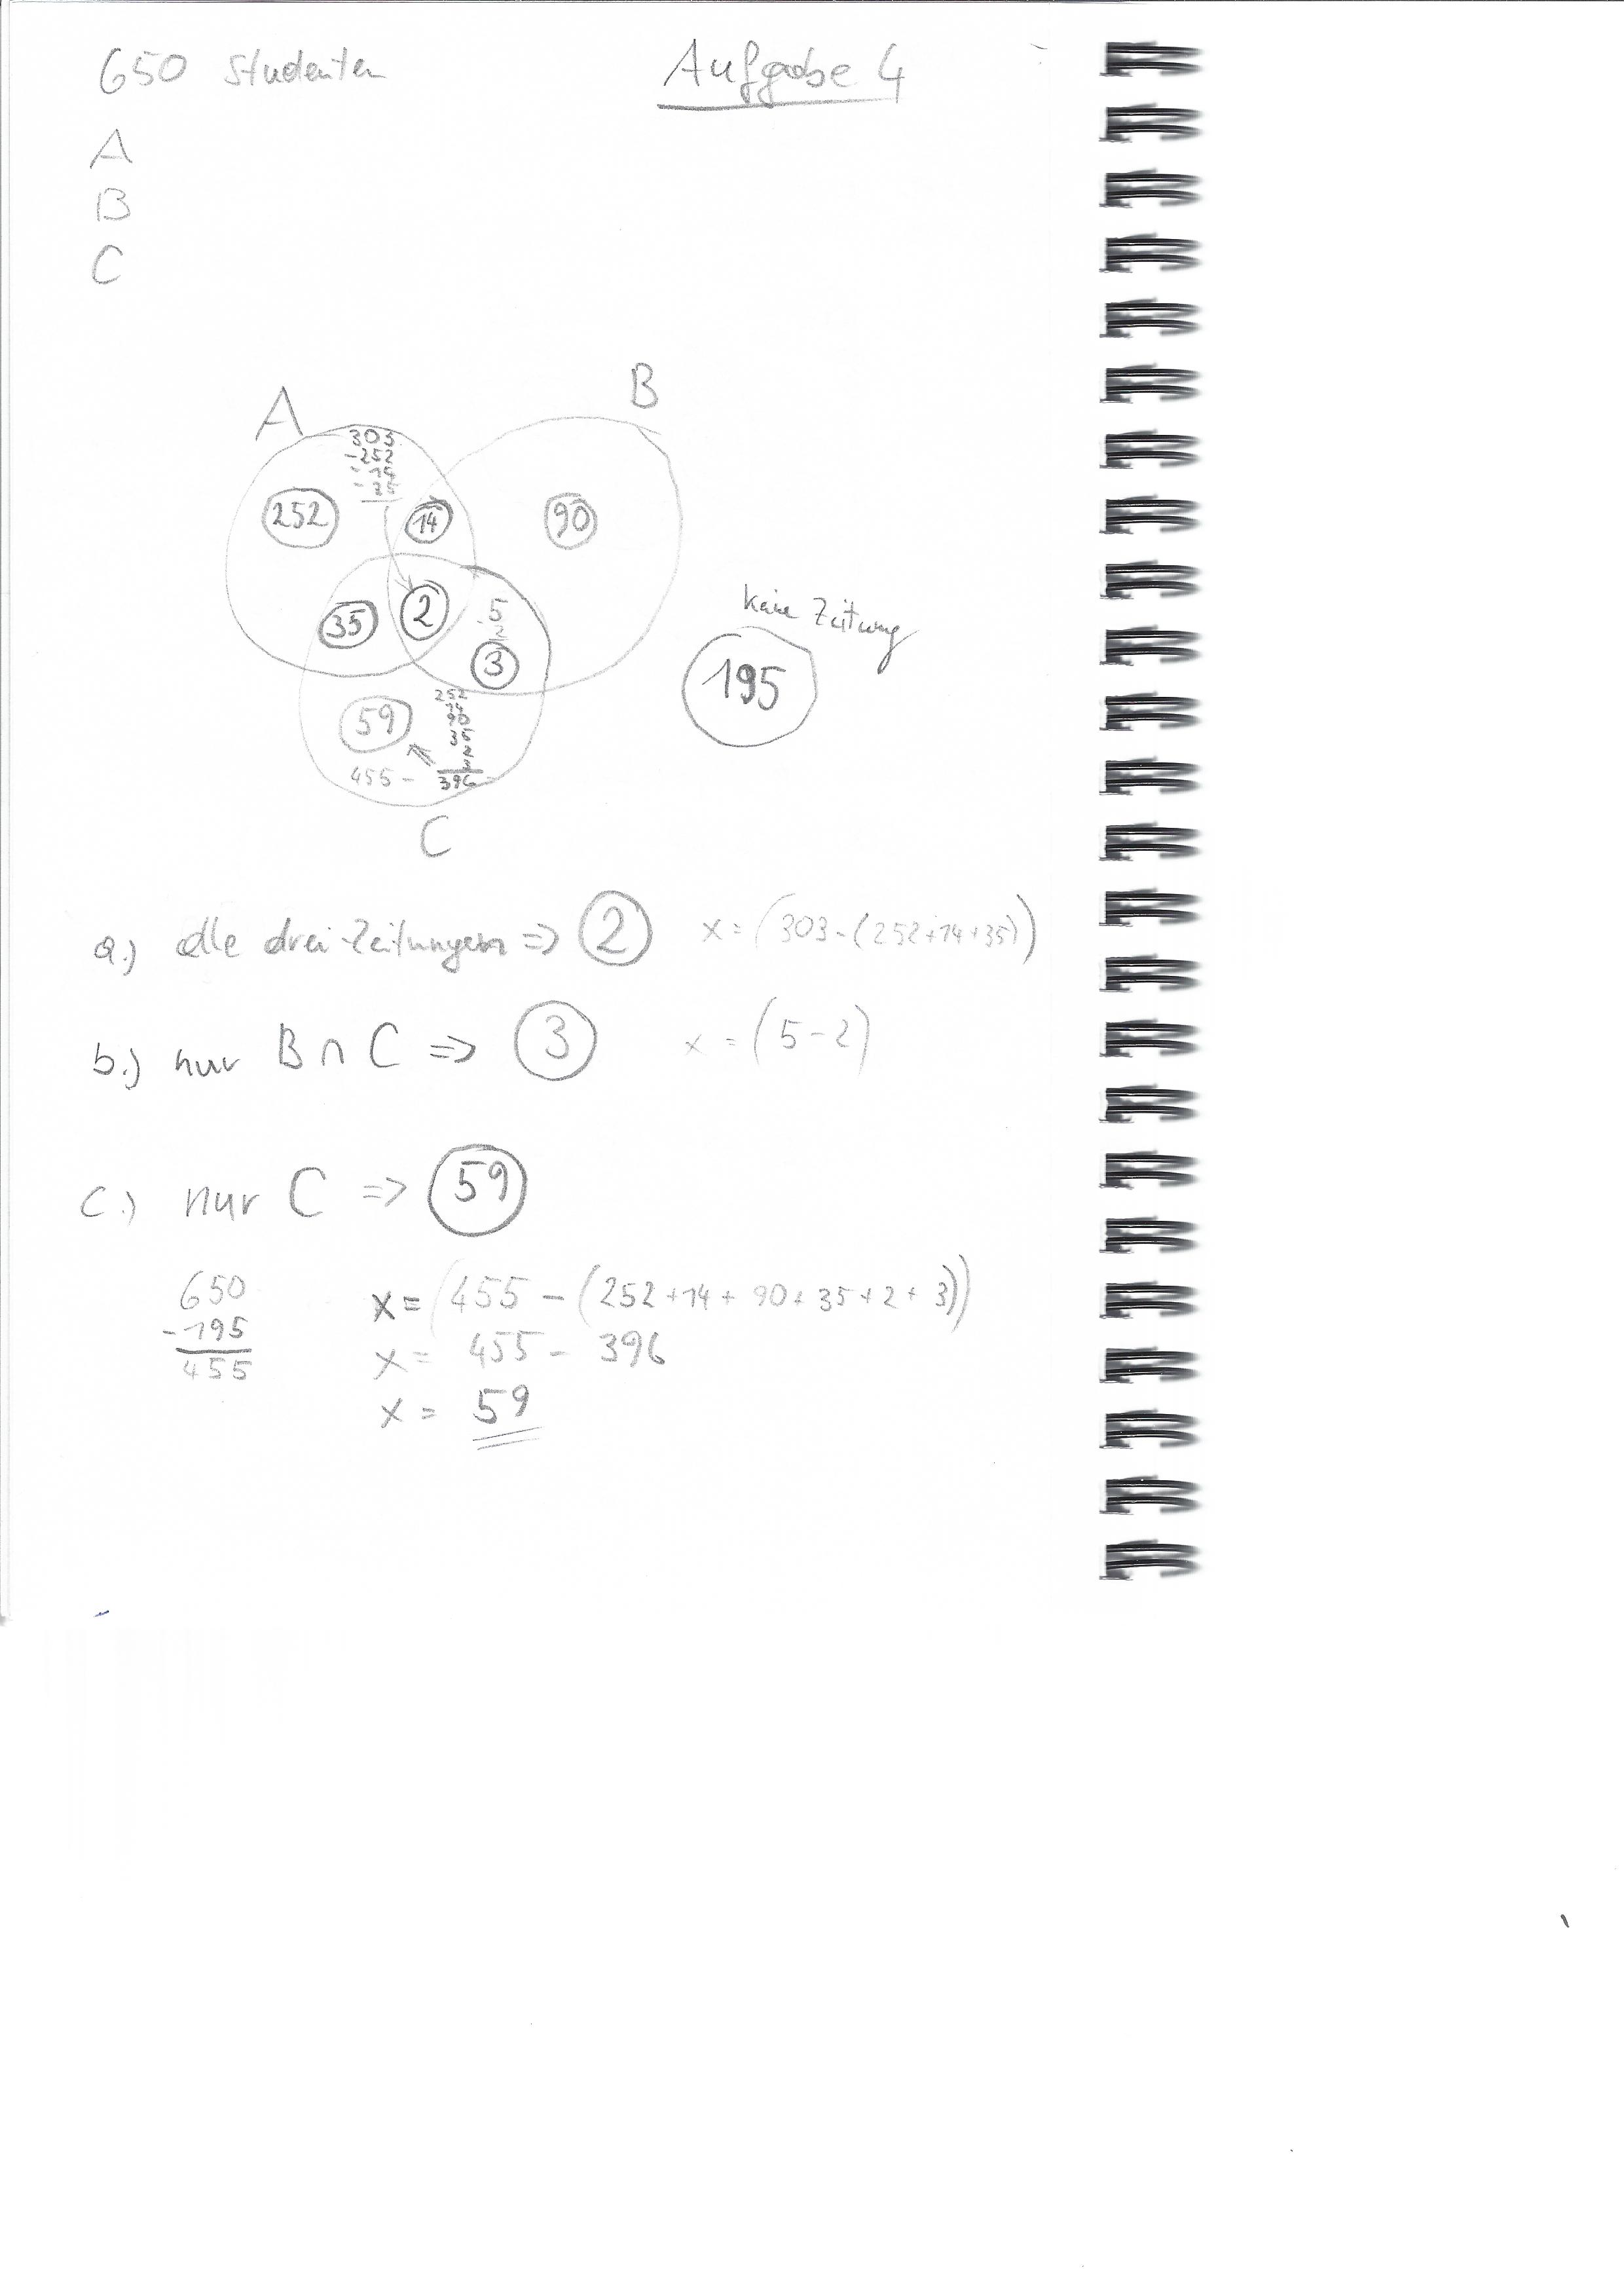 650 Studenten
Aufgabe 4
A
B
C
A
B
303
-252
- 14
- 35
252
14
90
35
2
5
- 2
3
keine Zeitung
195
59
252
14
90
35
2
3
396
455 -
C
a.) alle drei Zeitungen => 2 x = (303 - (252+14+35))
b.) nur B ∩ C => 3 x = (5 - 2)
c.) nur C => 59
650
-195
455
x = (455 - (252 + 14 + 90 + 35 + 2 + 3))
x = 455 - 396
x = 59